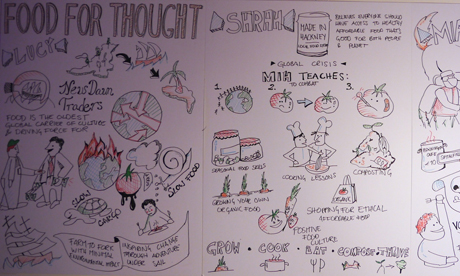 FOOD FOR THOUGHT
LUCY
New Dawn
Traders
FOOD IS THE OLDEST
GLOBAL CARRIER OF CULTURE
& DRIVING FORCE FOR
SLOW
CARGO
SLOW FOOD
FARM TO FORK
WITH MINIMAL
ENVIRONMENTAL IMPACT
INSPIRING CHANGE
THROUGH ADVENTURE
UNDER SAIL
SARAH
MADE IN
HACKNEY
BELIEVES EVERYONE SHOULD
HAVE ACCESS TO HEALTHY
AFFORDABLE FOOD THAT'S
GOOD FOR BOTH PEOPLE
& PLANET
GLOBAL CRISIS
MIH TEACHES:
TO COMBAT
1.
2.
3.
SEASONAL FOOD SKILLS
COOKING LESSONS
COMPOSTING
GROWING YOUR OWN
ORGANIC FOOD
ORGANIC
SHOPPING FOR ETHICAL
AFFORDABLE FOOD
POSITIVE
FOOD
CULTURE
GROW · COOK · EAT · COMPOST · THRIVE